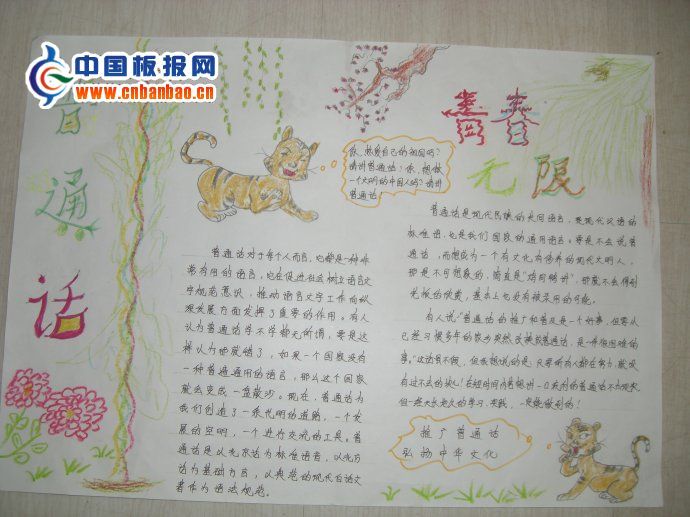 中国板报网
www.cnbanbao.cn
普
通
话
无限
你,热爱自己的祖国吗?
请讲普通话!你,想做
一个文明的中国人吗?请讲
普通话!
普通话对于每个人而言,它都是一种非
常有用的语言,它在促进社会树立语言文
字规范意识,推动语言文字工作向纵
深发展方面发挥了重要的作用。有人
认为普通话学不学都无所谓,要是这
样认为那就错了,如果一个国家没有
一种普遍通用的语言,那么这个国家
就会变成一盘散沙。现在,普通话为
我们创造了一条光明的道路,一个发
展的空间,一个进行交流的工具。普
通话是以北京话为标准语音,以北方
话为基础方言,以典范的现代白话文
著作为语法规范。
普通话是现代民族的共同语言,是现代汉语的
标准语,也是我们国家的通用语言。要是不会说普
通话,而想成为一个有文化有修养的现代文明人,
那是不可想象的,简直是"鸡同鸭讲",那就不会得到
老板的欣赏,基本上也没有被录用的可能。
有人说"普通话的推广和普及是一个好事,但要从
已经习惯多年的家乡突然改换成普通话,是一件很困难的
事。"这话有不假,但我想说的是,只要所有人都在努力,就没
有过不去的坎!在短时间内若能讲一口流利的普通话不为现实
但一起长期持久的学习、实践,一定能做到的!
推广普通话
弘扬中华文化